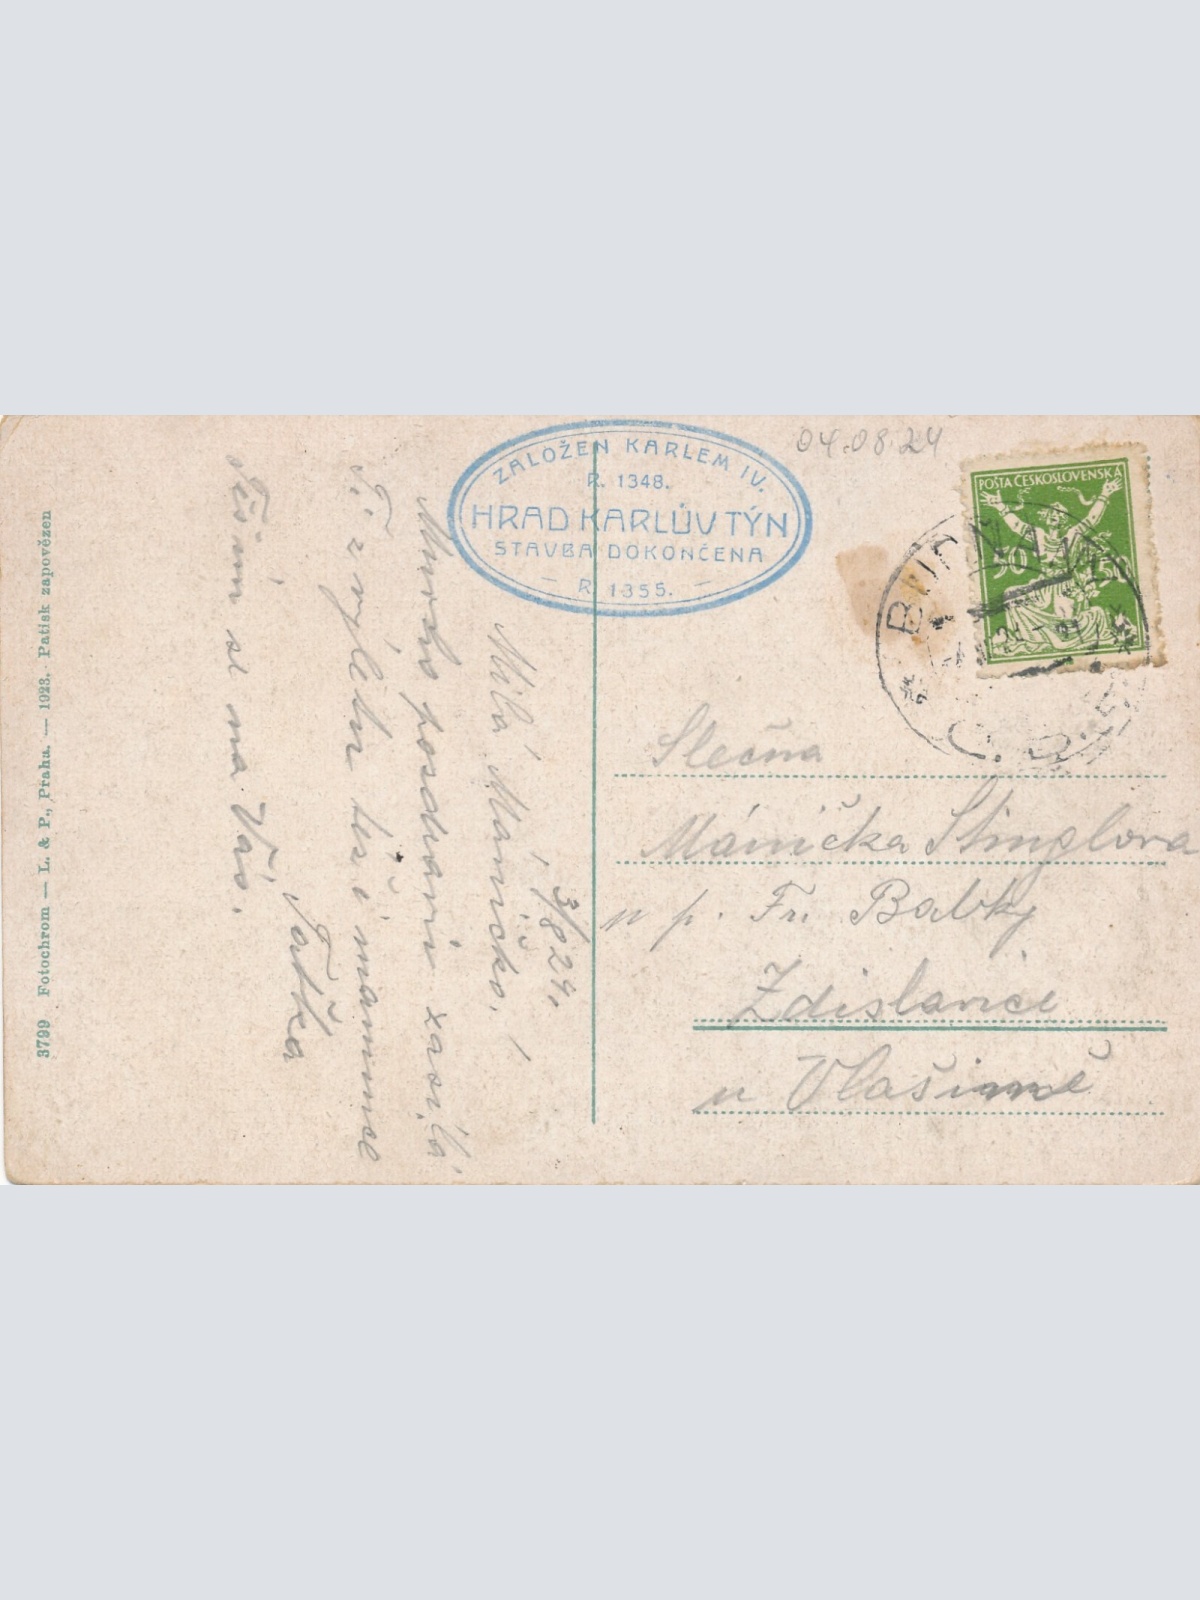 04.08.24
ZALOŽEN KARLEM IV.
R. 1348.
HRAD KARLŮV TÝN
STAVBA DOKONČENA
— R. 1355. —
POŠTA ČESKOSLOVENSKÁ
50
3/8 24.
Milá Maničko,
Mnoho pozdravů zasílá
Ti z výletu též i mamince
Tatka
Těším se na Vás.
Slečna
Mánička Stinglova
u p. Fr. Babky
Zdislavice
u Vlašimě
3799 Fotochrom — L. & P., Praha. — 1923. Patisk zapovězen